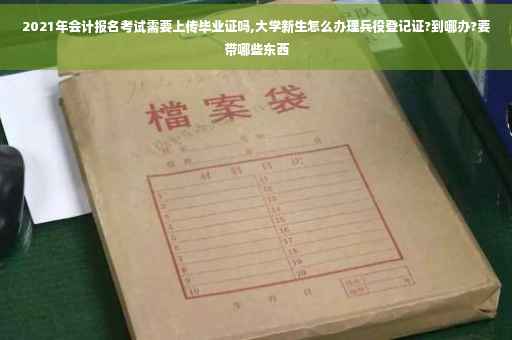 2021年会计报名考试需要上传毕业证吗,大学新生怎么办理兵役登记证?到哪办?要
带哪些东西
檔案袋
材料目次
1 11
2 12
3 13
4 14
5 15
6 16
7 17
8 18
9 19
10 20
年 月 日